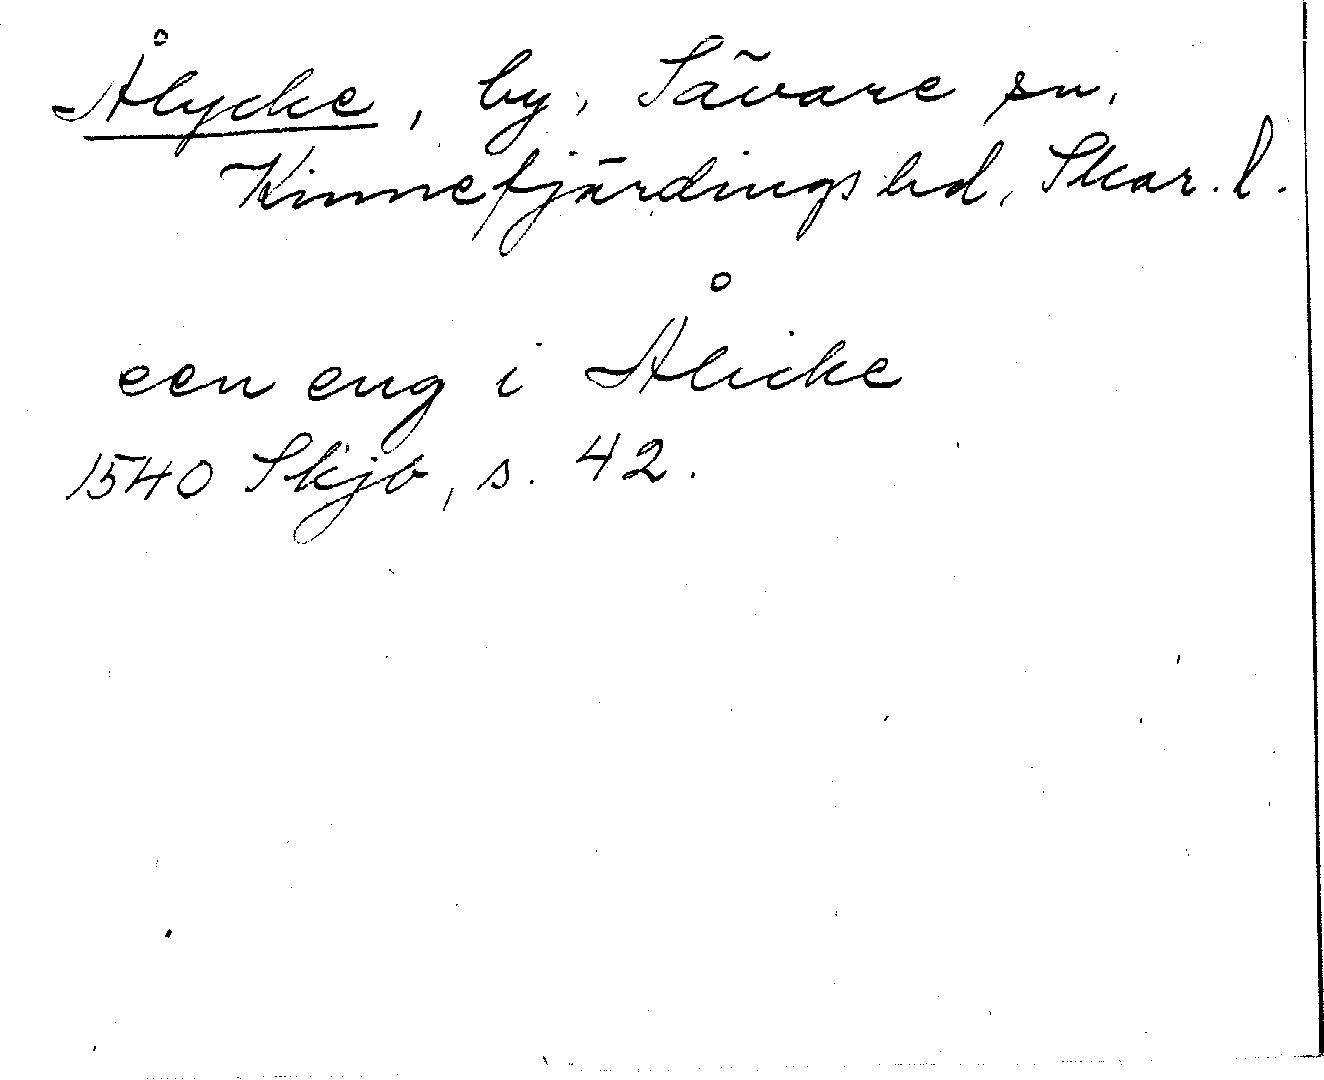 Ålycke, by, Sävare sn,
Kinnefjärdings hd, Skar. l.
een eng i Ålicke
1540 Skjb, s. 42.